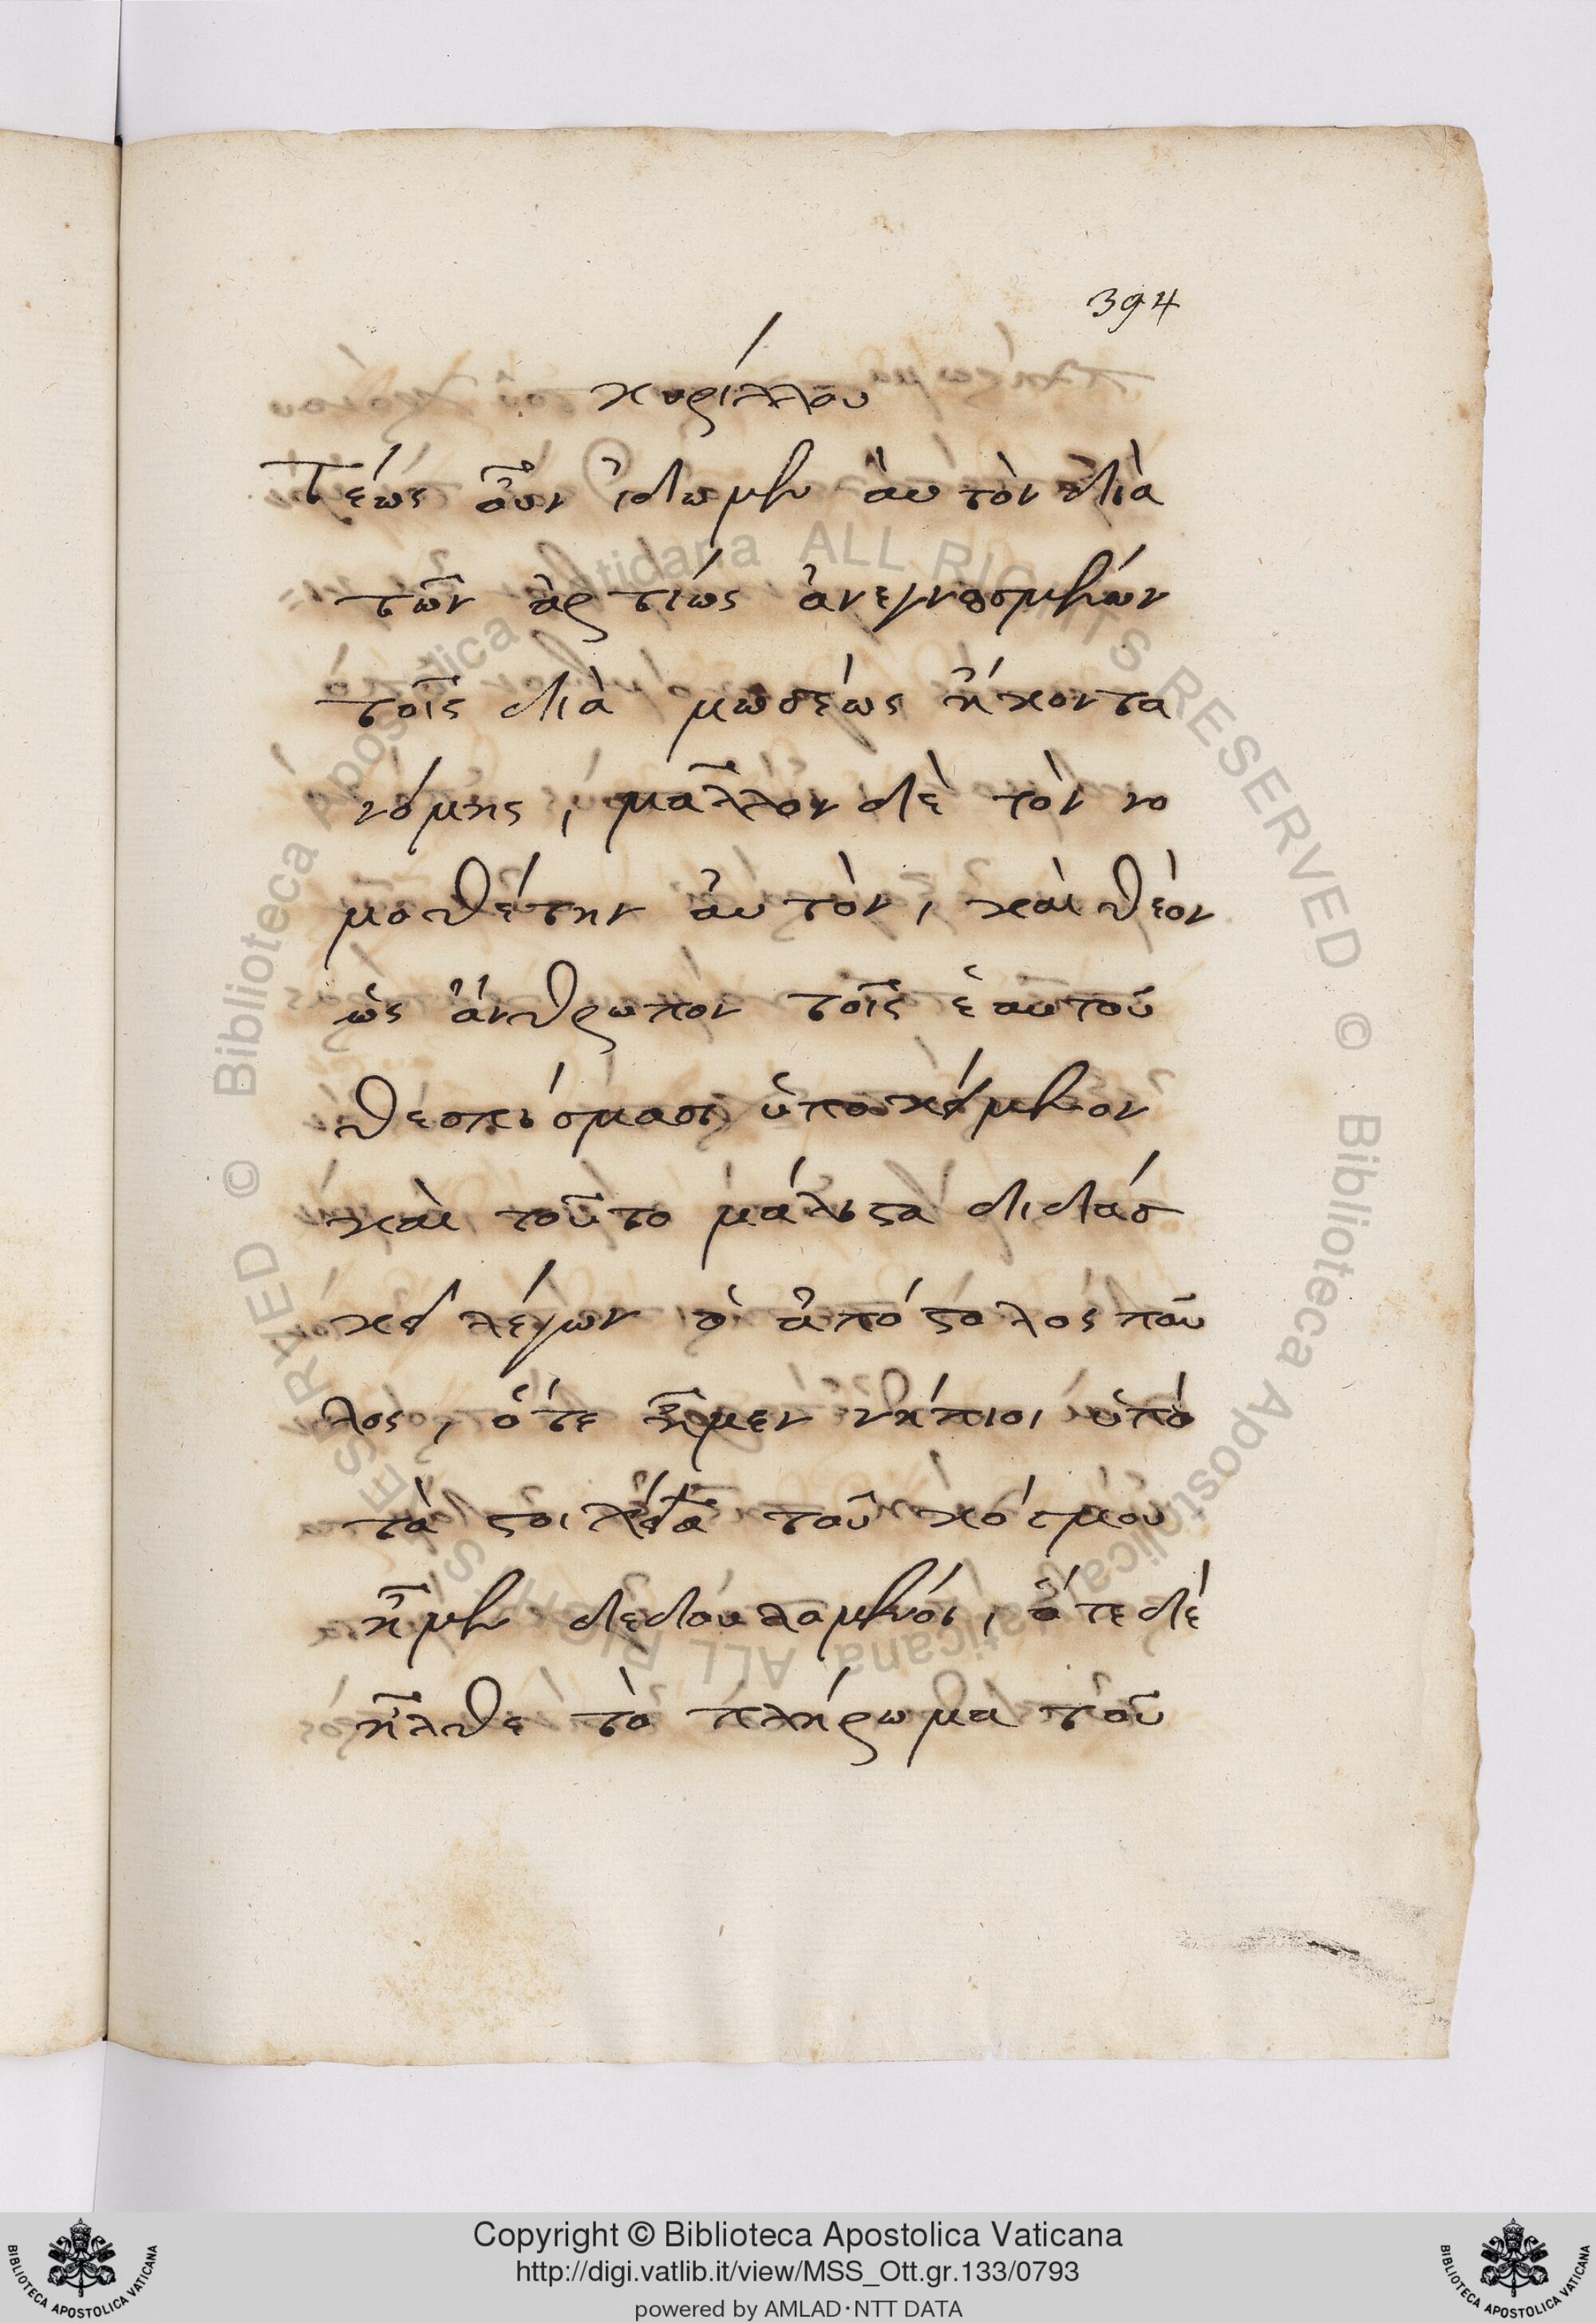 394
κυρίλλου
Τέως οὖν ἴδωμεν ἀυτὸν διὰ
τῶν ἀρτίως ἀνεγνοσμένων
τοῖς διὰ μωσέως ἥκοντα
νόμης, μᾶλλον δὲ τὸν νο
μοθέτην ἀυτὸν, καὶ θεὸν
ὡς ἄνθρωπον τοῖς ἑαυτοῦ
θεσπίσμασι ὑποκείμενον
καὶ τοῦτο μάλιστα διδάσ
κει λέγων ὁ ἀπόστολος παῦ
λος, ὅτε ἦμεν νήπιοι ὑπὸ
τὰ στοιχεῖα τοῦ κόσμου
ἦμεν δεδουλομένοι, ὅτε δὲ
ἦλθε τὸ πλήρωμα τοῦ
© Biblioteca Apostolica Vaticana ALL RIGHTS RESERVED © Biblioteca Apostolica Vaticana ALL RIGHTS RESERVED
Copyright © Biblioteca Apostolica Vaticana
http://digi.vatlib.it/view/MSS_Ott.gr.133/0793
powered by AMLAD·NTT DATA
BIBLIOTECA APOSTOLICA VATICANA
BIBLIOTECA APOSTOLICA VATICANA